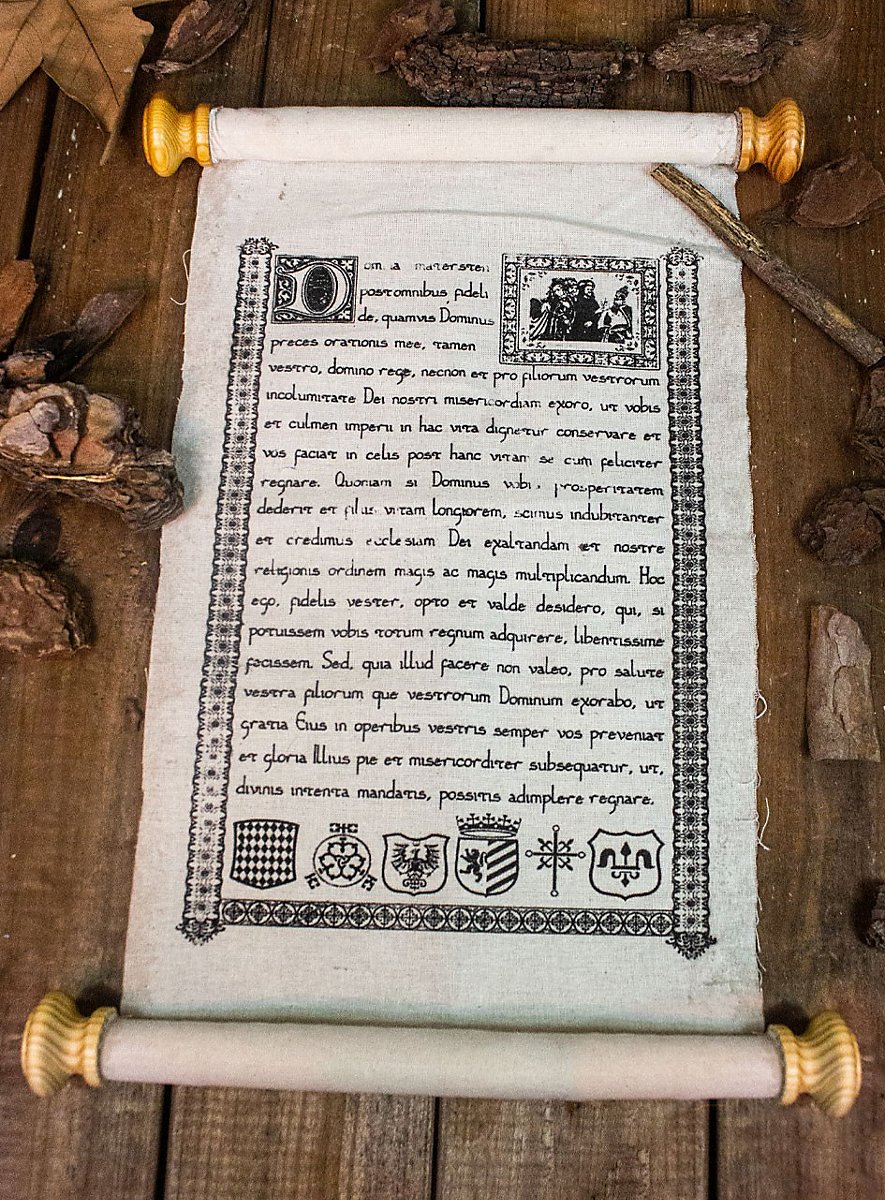 Dom a mater sten
post omnibus fideli
de, quamvis Dominus
preces orationis mee, tamen
vestro, domino rege, necnon et pro filiorum vestrorum
incolumitate Dei nostri misericordiam exoro, ut vobis
et culmen imperii in hac vita dignetur conservare et
vos faciat in celis post hanc vitam se cum feliciter
regnare. Quoniam si Dominus vobis prosperitatem
dederit et filiis vitam longiorem, scimus indubitanter
et credimus ecclesiam Dei exaltandam et nostre
religionis ordinem magis ac magis multiplicandum. Hoc
ego, fidelis vester, opto et valde desidero, qui, si
potuissem vobis totum regnum adquirere, libentissime
fecissem. Sed, quia illud facere non valeo, pro salute
vestra filiorum que vestrorum Dominum exorabo, ut
gratia Eius in operibus vestris semper vos preveniat
et gloria Illius pie et misericorditer subsequatur, ut,
divinis intenta mandatis, possitis adimplere regnare.